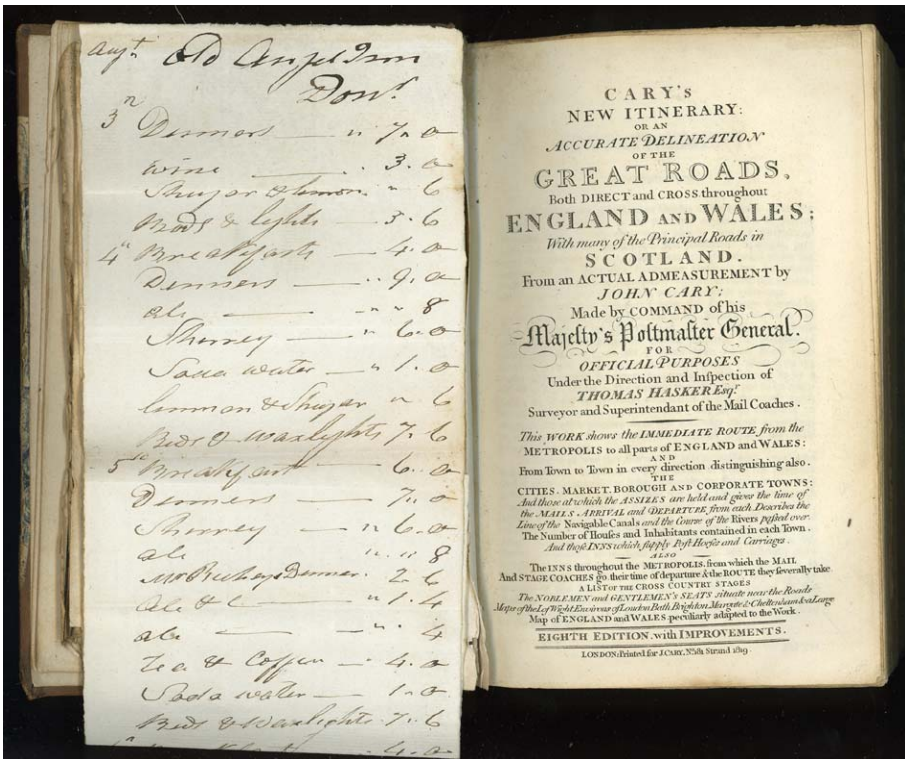 Augt Old Angel Inn
Donr
3n Dinners — " 7 " 0
Wine — 3 " 0
Shugar & lemon " 6
Beds & lights — 3 " 6
4" Breakfasts — 4 " 0
Dinners — " 9 " 0
Ale — " " 8
Sherrey — " 6 " 0
Soda water — " 1 " 0
lemmon & Shugar " 6
Beds & Waxlights 7 " 6
5" Breakfast — 6 " 0
Dinners — 7 " 0
Sherrey — " 6 " 0
ale " " 8
Dinner 2 " 6
Ale & " 1 " 4
ale — " 4
Tea & Coffee — 4 " 0
Soda water — 1 " 0
Beds & Waxlights 7 " 6
4 " 0
CARY's
NEW ITINERARY:
OR AN
ACCURATE DELINEATION
OF THE
GREAT ROADS,
Both DIRECT and CROSS throughout
ENGLAND AND WALES;
With many of the Principal Roads in
SCOTLAND.
From an ACTUAL ADMEASUREMENT by
JOHN CARY;
Made by COMMAND of his
Majesty's Postmaster General.
FOR
OFFICIAL PURPOSES
Under the Direction and Inspection of
THOMAS HASKER Esqr.
Surveyor and Superintendant of the Mail Coaches.
This WORK shows the IMMEDIATE ROUTE from the
METROPOLIS to all parts of ENGLAND and WALES:
AND
From Town to Town in every direction distinguishing also.
THE
CITIES. MARKET. BOROUGH AND CORPORATE TOWNS:
And those at which the ASSIZES are held and gives the time of
the MAILS ARRIVAL and DEPARTURE from each Describes the
Line of the Navigable Canals and the Course of the Rivers passed over
The Number of Houses and Inhabitants contained in each Town.
And those INNS which supply Post Horses and Carriages.
ALSO
The INNS throughout the METROPOLIS, from which the MAIL
And STAGE COACHES go, their time of departure & the ROUTE they severally take.
A LIST OF THE CROSS COUNTRY STAGES
The NOBLEMEN and GENTLEMEN'S SEATS situate near the Roads
Maps of the I. of Wight Environs of London Bath Brighton Margate & Cheltenham & a Large
Map of ENGLAND and WALES, peculiarly adapted to the Work.
EIGHTH EDITION, with IMPROVEMENTS.
LONDON: Printed for J. CARY, No. 181 Strand 1819.